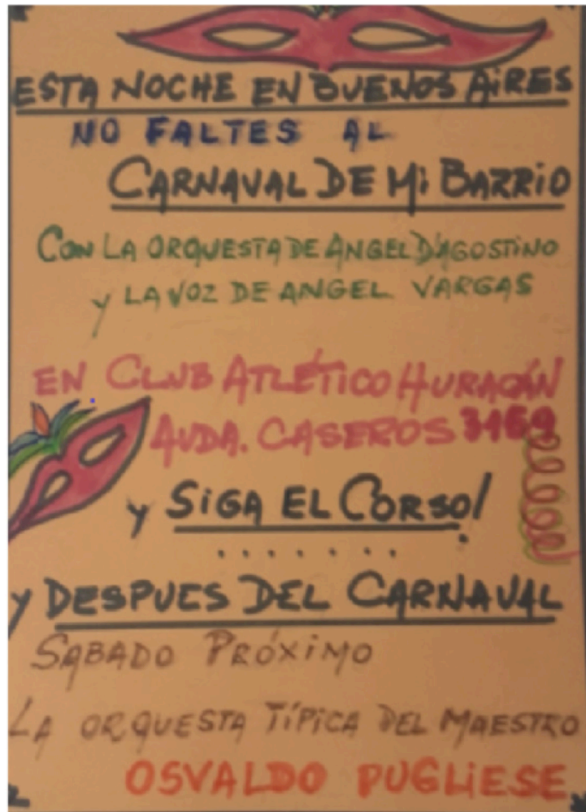 ESTA NOCHE EN BUENOS AiRES
NO FALTES AL
CARNAVAL DE Mi BARRiO
CON LA ORQUESTA DE ANGEL D'AGOSTINO
y LA VOZ DE ANGEL VARGAS
EN CLUB ATLÉTICO HURACÁN
AVDA. CASEROS 3159
y SiGA EL CORSO!
.......
y DESPUES DEL CARNAVAL
SABADO PRÓXIMO
LA ORQUESTA TÍPICA DEL MAESTRO
OSVALDO PUGLiESE